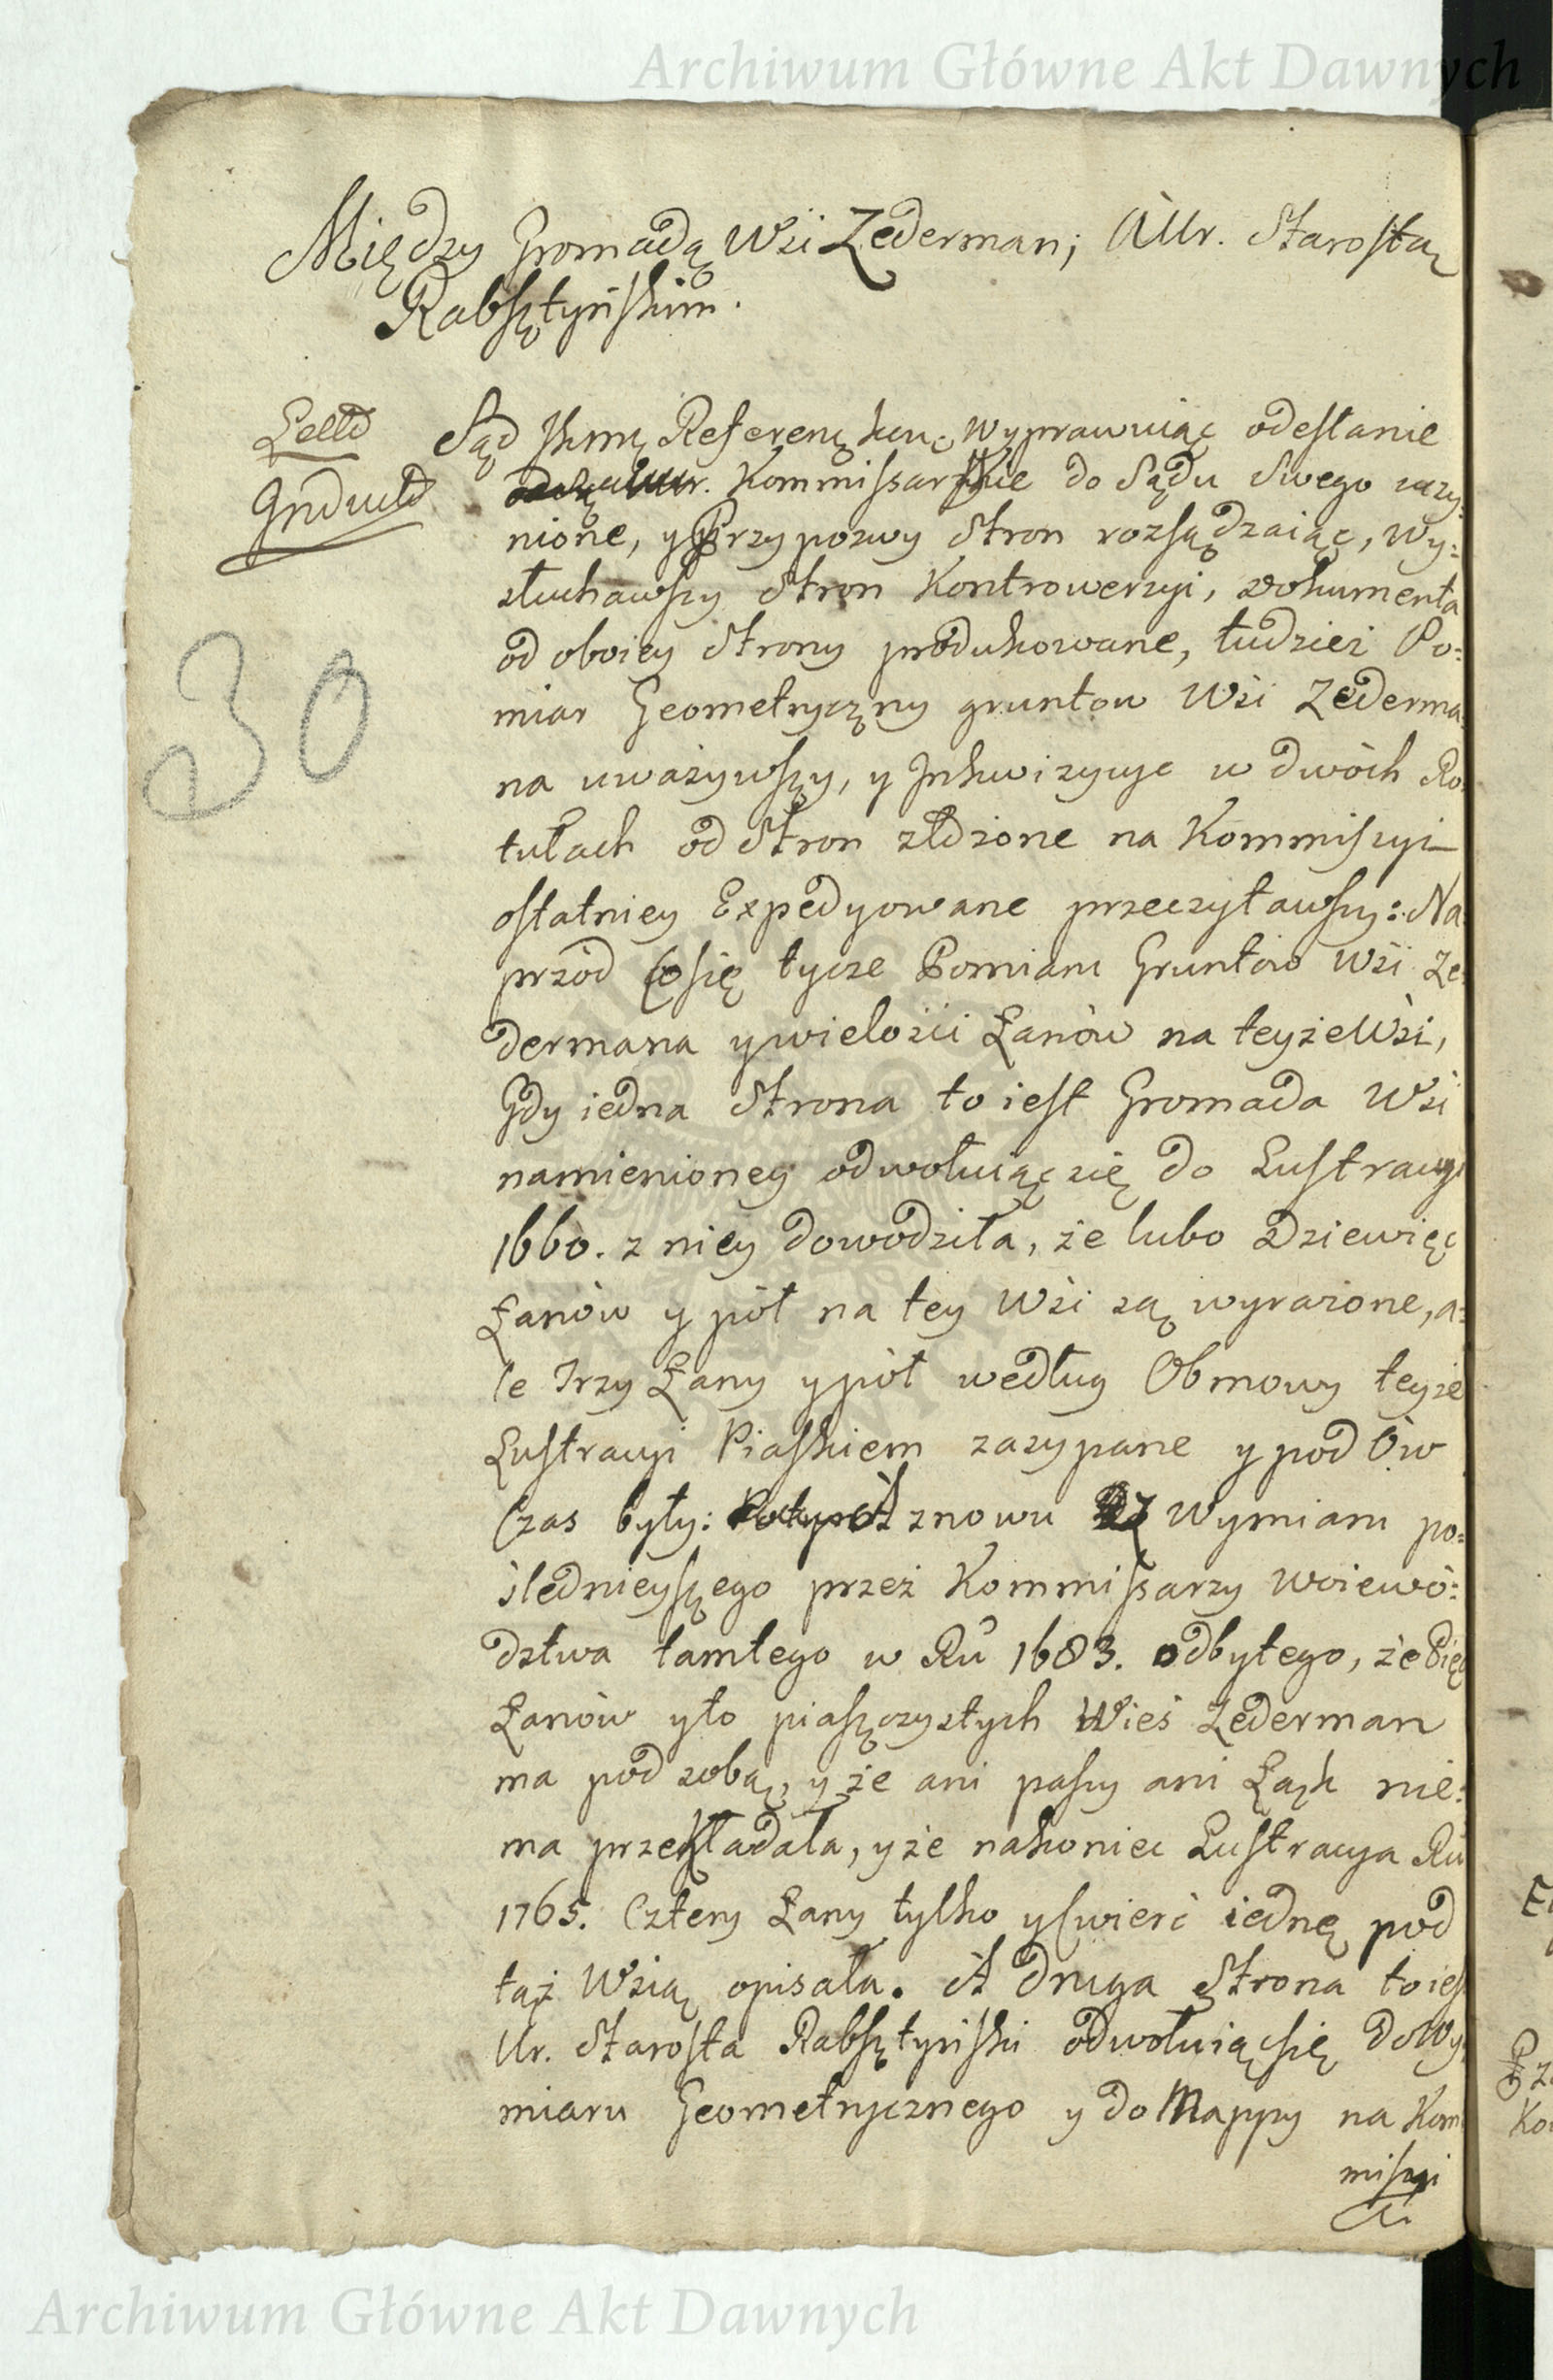 Archiwum Główne Akt Dawnych
Między Gromadą Wsi Zederman; A Ur. Starostą
Rabsztyńskim.
Sąd JKmci Referendar. Wyprawuiąc odesłanie
Ur. Kommissarskie do Sądu Swego uczy:
nione, y Przypozwy Stron rozsądzaiąc, Wy:
słuchawszy Stron Kontrowersyi, dokumenta
od oboiey Strony produkowane, tudzież Po:
miar Geometryczny gruntow Wsi Zederma:
na uważywszy, y Inkwizycye w dwóch Ro:
tułach od Stron złożone na Kommissyi
ostatniey Expedyowane przeczytawszy: Na
przód Co się tycze Pomiaru Gruntów Wsi Ze:
dermana y wielości Łanów na teyże Wsi,
Gdy iedna Strona to iest Gromada Wsi
namienioney odwołuiąc się do Lustracyi
1660. z niey dowodziła, że lubo Dziewięć
Łanów y pół na tey Wsi są wyrażone, a:
le Trzy Łany y pół według Obmowy teyże
Lustracyi Piaskiem zasypane y pod Ów
Czas były: A znowu Z Wymiaru po:
ślednieyszego przez Kommissarzy Woiewó:
dztwa tamtego w Ru 1683. odbytego, że Pięć
Łanów y to piaszczystych Wieś Zederman
ma pod sobą, y że ani paszy ani Łąk nie:
ma przekładała, y że nakoniec Lustracya Ru
1765. Cztery Łany tylko y Cwierć iednę pod
tąż Wsią opisała. A druga Strona to iest
Ur. Starosta Rabsztyński odwołuiąc się do Wy:
miaru Geometrycznego y do Mappy na Kom
missyi
30
Archiwum Główne Akt Dawnych